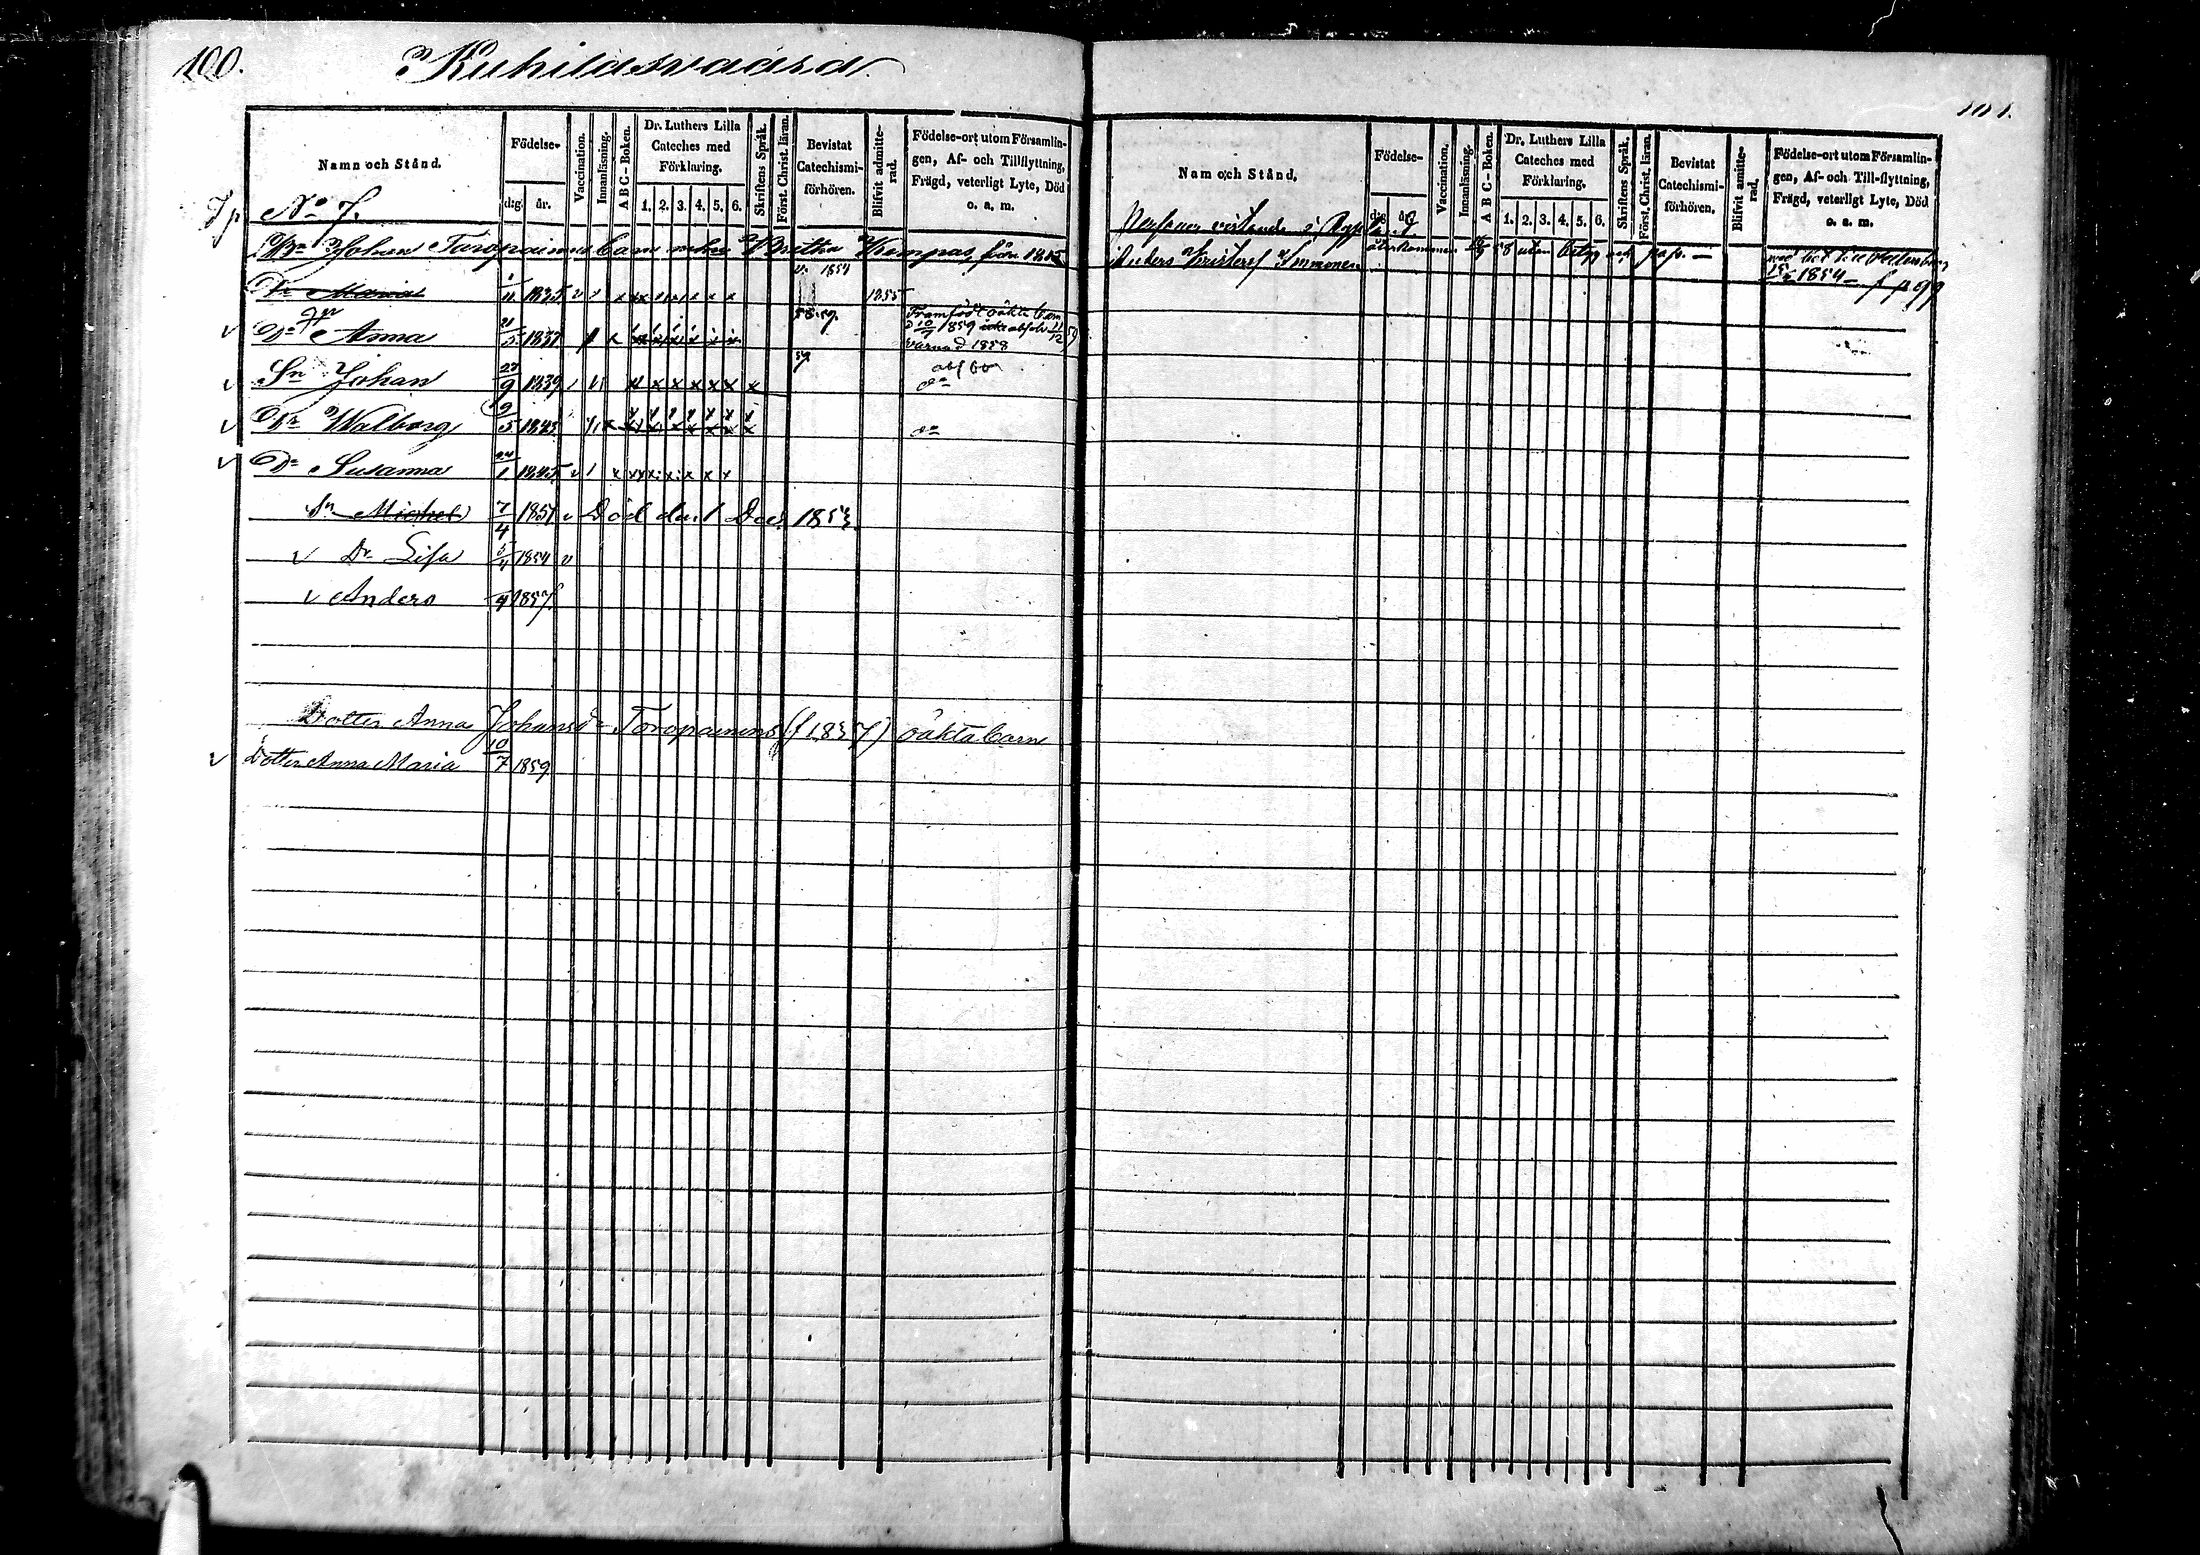 100.
Kuhilasvaara.
101.
Namn och Stånd.
Födelse-
dig.
år.
Vaccination.
Innanläsning.
A B C - Boken.
Dr. Luthers Lilla
Cateches med
Förklaring.
1. 2. 3. 4. 5. 6.
Skriftens Språk.
Först. Christ. läran.
Bevistat
Catechismi-
förhören.
Blifvit admitte-
rad.
Födelse-ort utom Församlin-
gen, Af- och Tillflyttning,
Frägd, veterligt Lyte, Död
o. a. m.
No 7.
Johan Toropainens barn Brita Kempas från
1854
Dr Maria 1/11 1835 1855
58. 59. Framfödt oäkta barn
Dr Anna 21/5 1837 10/7 1859
varnad 1858
59
Sn Johan 27/9 1839 Do
Dr Walborg 9/5 1843 Do
Dr Susanna 24/1 1845
Sn Michel 7/4 1851 Död den 1 Dec. 1853.
Dr Lisa 5/4 1854
Anders 9 1857
Dotter Anna Johansdr Toropainens (f 1837) oäkta barn
Dotter Anna Maria 10/7 1859
Nam och Stånd.
Födelse-
dig
år
Vaccination.
Innanläsning.
A B C - Boken.
Dr. Luthers Lilla
Cateches med
Förklaring.
1. 2. 3. 4. 5. 6.
Skriftens Språk.
Först. Christ. läran.
Bevistat
Catechismi-
förhören.
Blifvit amitte-
rad.
Födelse-ort utom Församlin-
gen, Af- och Till-flyttning,
Frägd, veterligt Lyte, Död
o. a. m.
vistande i
Anders Immonen återkommen 58 utan
1854 - f p 99